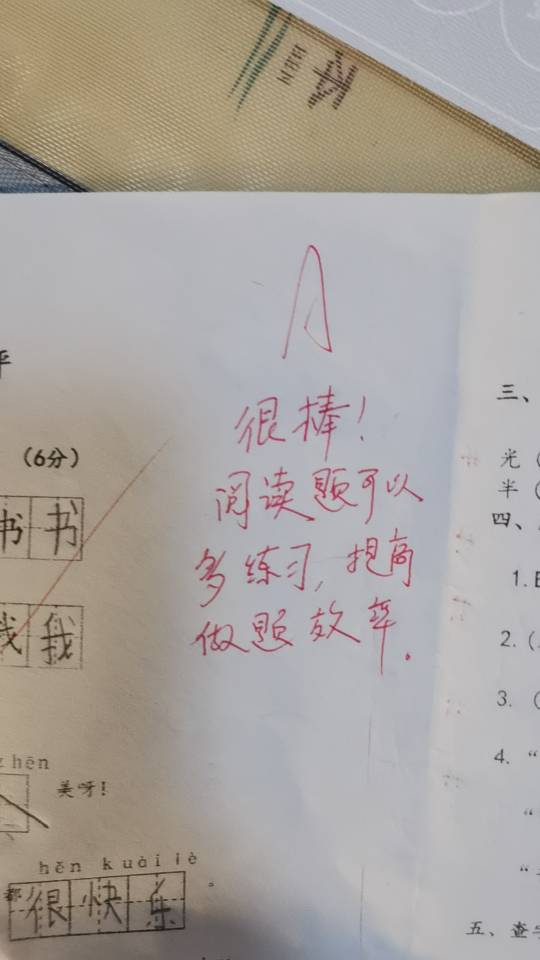 A
很棒！
阅读题可以
多练习，提高
做题效率。
（6分）
书 书
我 我
zhēn
美呀！
hěn kuài lè
都 很 快 乐 。
三、
光（
半（
四、
1.
2.（
3.（
4.“
“
“
五、查字